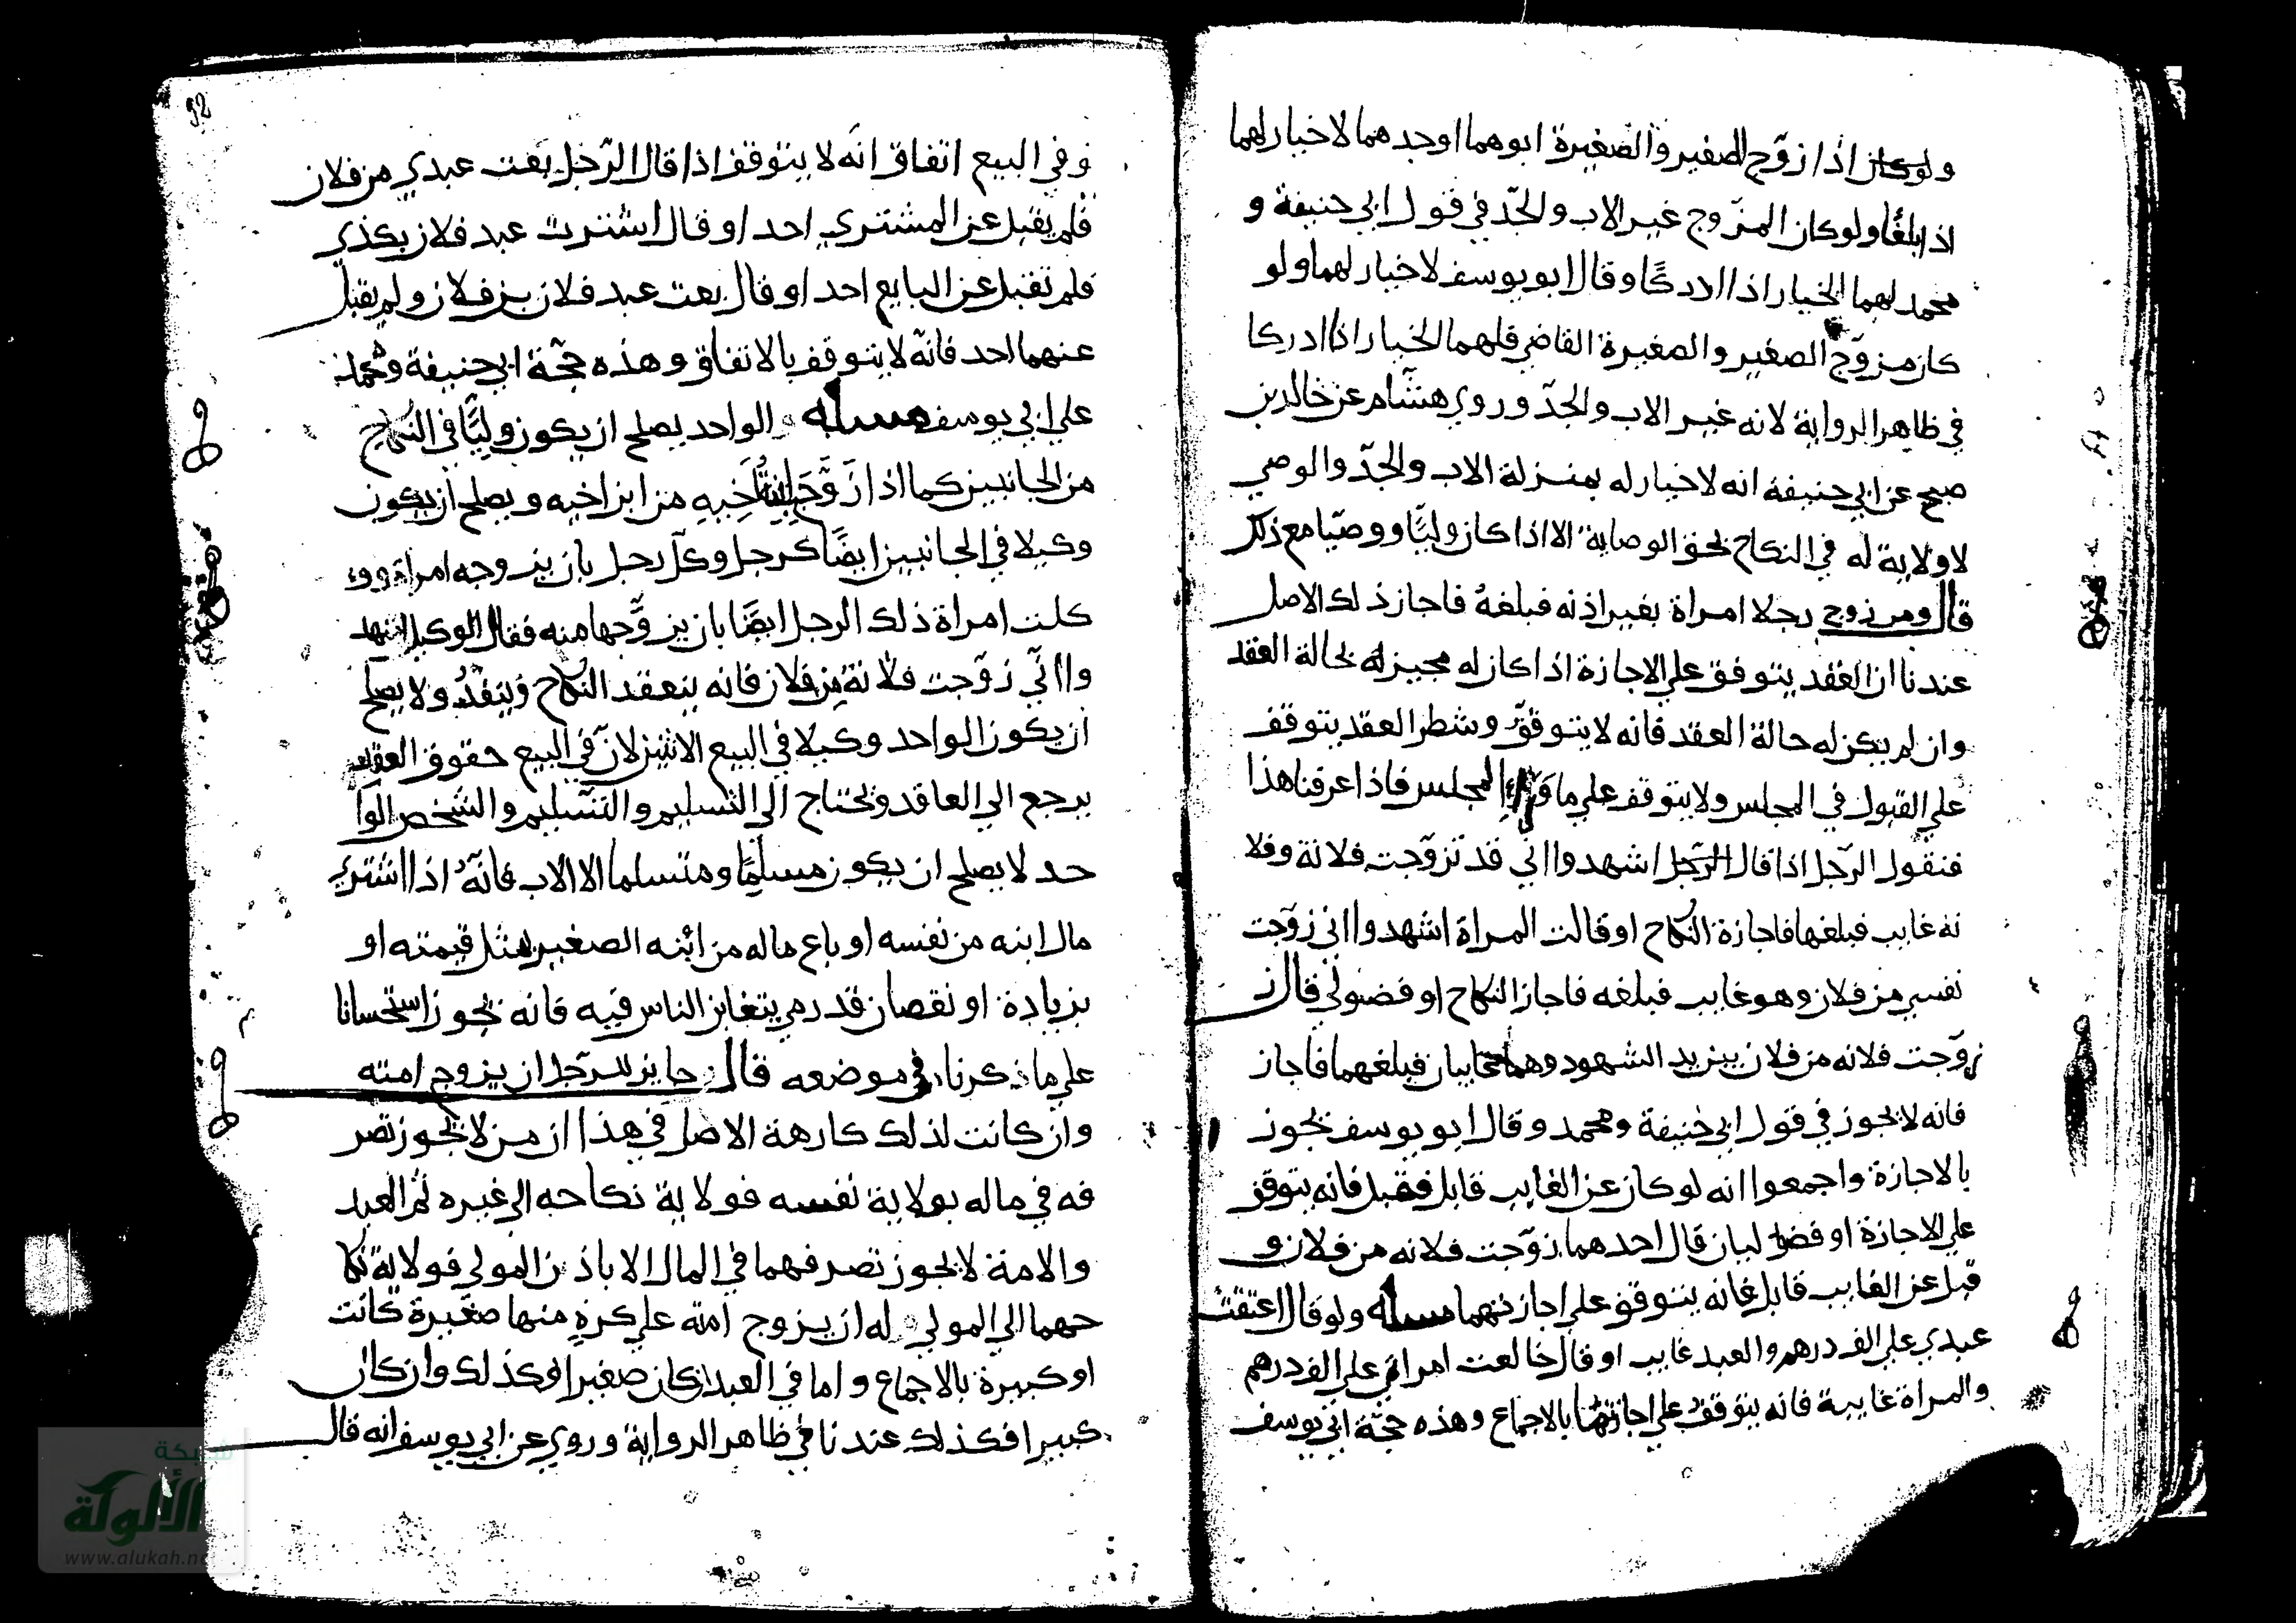 ولوكان اذا زوّج الصغير والصغيرة ابوهما او جدهما لا خيار لهما
اذا بلغا ولو كان المزوج غير الاب والجدّ في قول ابي حنيفة و
محمد لهما الخيار اذا ادركا وقال ابو يوسف لا خيار لهما ولو
كان مزوّج الصغير والصغيرة القاضي فلهما الخيار اذا ادركا
في ظاهر الرواية لانه غير الاب والجدّ وروي هشام عن خالد بن
صبيح عن ابي حنيفة انه لا خيار له بمنزلة الاب والجدّ والوصي
لا ولاية له في النكاح بحق الوصاية الا اذا كان وليًّا ووصيّا مع ذلك
قال ومن زوج رجلا امراة بغير اذنه فبلغهُ فاجاز ذلك الاصل
عندنا ان العقد يتوقف علي الاجازة اذا كان له مجيز له بحالة العقد
وان لم يكن له حالة العقد فانه لا يتوقف وشطر العقد يتوقف
علي القبول في المجلس ولا يتوقف علي ما وراء المجلس فاذا عرفنا هذا
فنقول الرّجل اذا قال الرّجل اشهدوا انّي قد تزوّجت فلانة وفلا
نة غايب فبلغها فاجازة النكاح او قالت المراة اشهدوا اني زوّجت
نفسي من فلان وهو غايب فبلغه فاجاز النكاح او فضولي قال
زوّجت فلانه من فلان بين يد الشهود وهما غايبان فبلغهما فاجاز
فانه لا يجوز في قول ابي حنيفة ومحمد وقال ابو يوسف يجوز
بالاجازة واجمعوا انه لو كان عن الغايب قابل فقبل فانه يتوقف
علي الاجازة او فضوليان قال احدهما زوّجت فلانه من فلان و
قبل عن الغايب قابل فانه يتوقف علي اجازتهما مسله ولو قال اعتقت
عبدي علي الف درهم والعبد غايب او قال خالعت امراتي علي الف درهم
والمراة غايبة فانه يتوقف علي اجازتهما بالاجماع وهذه حجّة ابي يوسف
92
وفي البيع اتفاق انّه لا يتوقف اذا قال الرّجل بعت عبدي من فلان
فلم يقبل عن المشتري احد او قال اشتريت عبد فلان بكذي
فلم تقبل عن البايع احد او قال بعت عبد فلان بن فلان ولم يقبل
عنهما احد فانّه لا يتوقف بالاتفاق وهذه حجّة ابي حنيفة ومحمد
علي ابي يوسف مسله الواحد يصلح ان يكون وليًّا في النكاح
من الجانبين كما اذا زوّج ابنة اخيه من ابن اخيه ويصلح ان يكون
وكيلا في الجانبين ايضًا كرجل وكّل رجل بان يزوجه امراة وو
كلت امراة ذلك الرجل ايضًا بان يزوّجها منه فقال الوكيل اشهد
وا انّي زوّجت فلانة من فلان فانه ينعقد النكاح وينفذُ ولا يصلح
ان يكون الواحد وكيلا في البيع الاثنين لانّ في البيع حقوق العقد
يرجع الي العاقد ويحتاج الي التسليم والتسليم والشخص الوا
حد لا يصلح ان يكون مسلمًا ومتسلما الا الاب فانّه اذا اشتري
مال ابنه من نفسه او باع ماله من ابنه الصغير بمثل قيمته او
بزيادة او نقصان قدر مي يتغابن الناس فيه فانه يجوز استحسانا
علي ما ذكرنا في موضعه قال جايز للرّجل ان يزوج امته
وان كانت لذلك كارهة الاصل في هذا ان من لا يجوز تصر
فه في ماله بولاية نفسه فولاية نكاحه الي غيره ثم العبد
والامة لا يجوز تصرفهما في المال الا باذن المولي فولاية نكا
حهما الي المولي له ان يزوج امته علي كره منها صغيرة كانت
او كبيرة بالاجماع واما في العبد ان كان صغيرا فكذلك وان كان
كبيرا فكذلك عندنا في ظاهر الرواية وروي عن ابي يوسف انه قال
شبكة
الألوكة
www.alukah.net